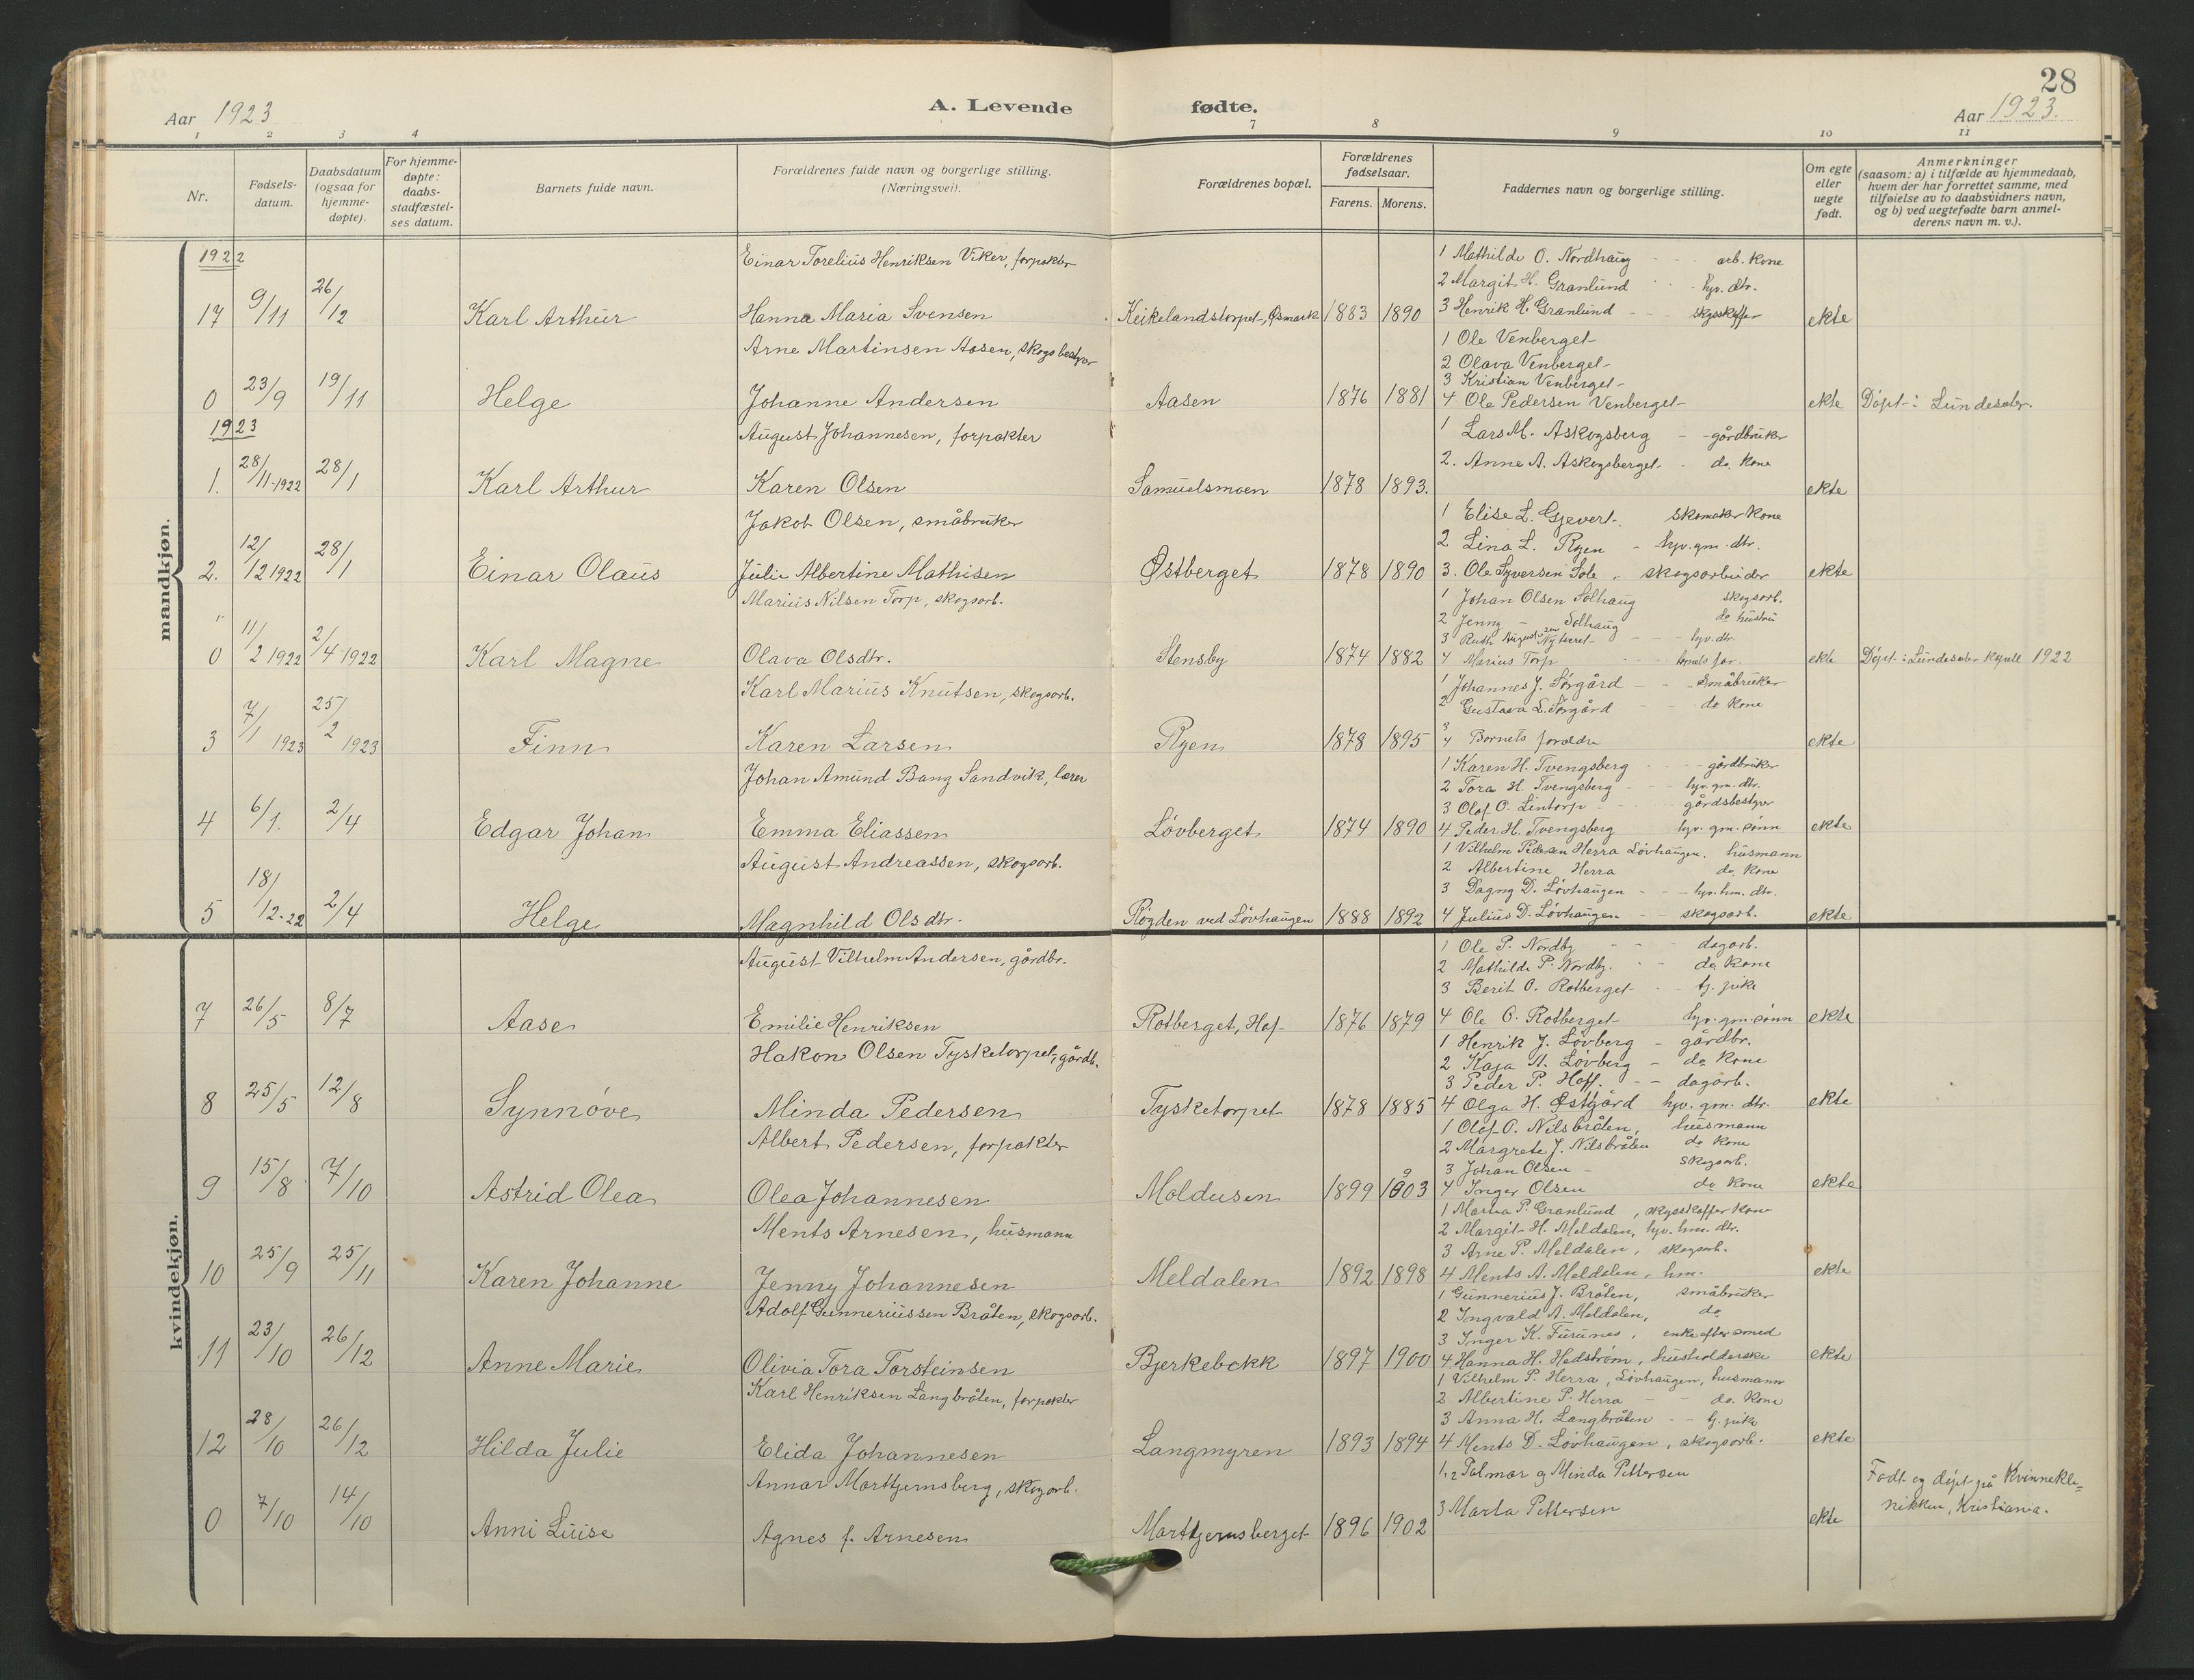 28
Aar 1923
A. Levende
fødte.
Aar 1923.
1 2 3 4 7 8 9 10 11
Nr.
Fødsels-
datum.
Daabsdatum
(ogsaa for
hjemme-
døpte).
For hjemme-
døpte:
daabs-
stadfæstel-
ses datum.
Barnets fulde navn.
Forældrenes fulde navn og borgerlige stilling.
(Næringsvei).
Forældrenes bopæl.
Forældrenes
fødselsaar.
Farens. Morens.
Faddernes navn og borgerlige stilling.
Om egte
eller
uegte
født.
Anmerkninger
(saasom: a) i tilfælde av hjemmedaab,
hvem der har forrettet samme, med
tilføielse av to daabsvidners navn,
og b) ved uegtefødte barn anmel-
derens navn m. v.).
mandkjøn.
1922
Einar Torelius Henriksen Viker, forpakter
1 Mathilde O. Nordhaug - - arb. kone
2 Margit H. Granlund hyv. dtr.
3 Henrik H. Granlund - - skysskaffer
17 9/11 26/12 Karl Arthur Hanna Maria Svensen Keikelandstorpet, Øsmark 1883 1890 ekte
Arne Martinsen Aasen, skogsbestyr
1 Ole Venberget
2 Olava Venberget
3 Kristian Venberget
0 23/9 19/11 Helge Johanne Andersen Aasen 1876 1881 4 Ole Pedersen Venberget ekte Døpt i Lundesæter.
1923
August Johannesen, forpakter
1 Lars M. Askogsberg - - gårdbruker
2. Anne A. Askogsberget - do. kone
1. 28/11-1922 28/1 Karl Arthur Karen Olsen Samuelsmoen 1878 1893. ekte
Jakob Olsen, småbruker
1 Elise L. Gjevert. skomaker kone
2 Lina L. Ryen - hyv. gm. dtr.
2. 12/12 1922 28/1 Einar Olaus Julie Albertine Mathisen Østberget 1878 1890 3. Ole Syversen Sole skogsarbeider ekte
Marius Nilsen Torp, skogsarb.
1 Johan Olsen Solhaug skogsarb.
2 Jenny - Solhaug do hustru
3 Ruth Nytorret - - - hyv. dtr.
0 11/2 1922 2/4 1922 Karl Magne Olava Olsdtr. Stensby 1874 1882 4 Marius Torp far. ekte Døpt i Lundesæter kapell 1922
Karl Marius Knutsen, skogsarb.
1 Johannes J. Sørgård - - Småbruker
2 Gustava L. Sørgård - - do kone
3
3 7/1 1923 25/2 1923 Finn Karen Larsen Ryen 1878 1895 4 Barnets forældre ekte
Johan Amund Bang Sandvik, lærer
1 Karen H. Tvengsberg - - - gårdbruker
2 Tora H. Tvengsberg - - hyv. gm. dtr.
3 Olaf O. Lintorp - - gårdsbestyr
4 6/1. 2/4 Edgar Johan Emma Eliassen Løvberget 1874 1890 4 Peder H. Tvengsberg hyv. gm. sønn ekte
August Andreassen, skogsarb.
1 Vilhelm Pedersen Herra Løvhaugen. husmann
2 Albertine Herra do. kone
3 Dagny D. Løvhaugen - - - hyv. hm. dtr.
5 18/12-22 2/4 Helge Magnhild Olsdtr. Røgden ved Løvhaugen 1888 1892 4 Julius D. Løvhaugen - - skogsarb. ekte
kvindekjøn.
August Vilhelm Andersen, gårdbr.
1 Ole P. Nordby - - - dagarb.
2 Mathilde P. Nordby. - - do. kone
3 Berit O. Rotberget - - tj. pike
7 26/5 8/7 Aase Emilie Henriksen Rotberget, Hof 1876 1879 4 Ole O. Rotberget hyv. gm. sønn ekte
Hakon Olsen Tysketorpet, gårdb.
1 Henrik J. Løvberg - gårdbr.
2 Kaja H. Løvberg - do kone
3 Peder P. Hoff. - - dagarb.
8 25/5 12/8 Synnøve Minda Pedersen Tysketorpet 1878 1885 4 Olga H. Østgård hyv. gm. dtr. ekte
Albert Pedersen, forpakter
1 Olaf O. Nilsbråten, husmann
2 Margrete J. Nilsbråten do kone
3 Johan Olsen - skogsarb.
9 15/8 7/10 Astrid Olea Olea Johannesen Moldusen 1899 1903 4 Inger Olsen do kone ekte
Ments Arnesen, husmann
1 Martha P. Granlund, skysskaffer kone
2 Margit H. Meldalen, hyv. hm. dtr.
3 Arne P. Meldalen, skogsarb.
10 25/9 25/11 Karen Johanne Jenny Johannesen Meldalen 1892 1898 4 Ments A. Meldalen, hm. ekte
Adolf Gunneriussen Bråten, skogsarb.
1 Gunnerius J. Bråten, småbruker
2 Ingvald A. Meldalen, do
3 Inger K. Furunes, enke efter smed
11 23/10 26/12 Anne Marie Olivia Tora Torsteinsen Bjerkebekk 1897 1900 4 Hanna H. Hedstrøm, husholderske ekte
Karl Henriksen Langbråten, forpakter
1 Vilhelm P. Herra, Løvhaugen, husmann
2 Albertine P. Herra - - do. kone
3 Anna H. Langbråten - - tj. pike
12 28/10 26/12 Hilda Julie Elida Johannesen Langmyren 1893 1894 4 Ments D. Løvhaugen, skogsarb. ekte
Annar Morttjernsberg, skogarb.
1,2 Palmar og Minda Pettersen
Født og døpt på Kvinnekli=
nikken, Kristiania.
0 7/10 14/10 Anni Luise Agnes f. Arnesen Morttjernsberget 1896 1902 3 Marta Pettersen ekte